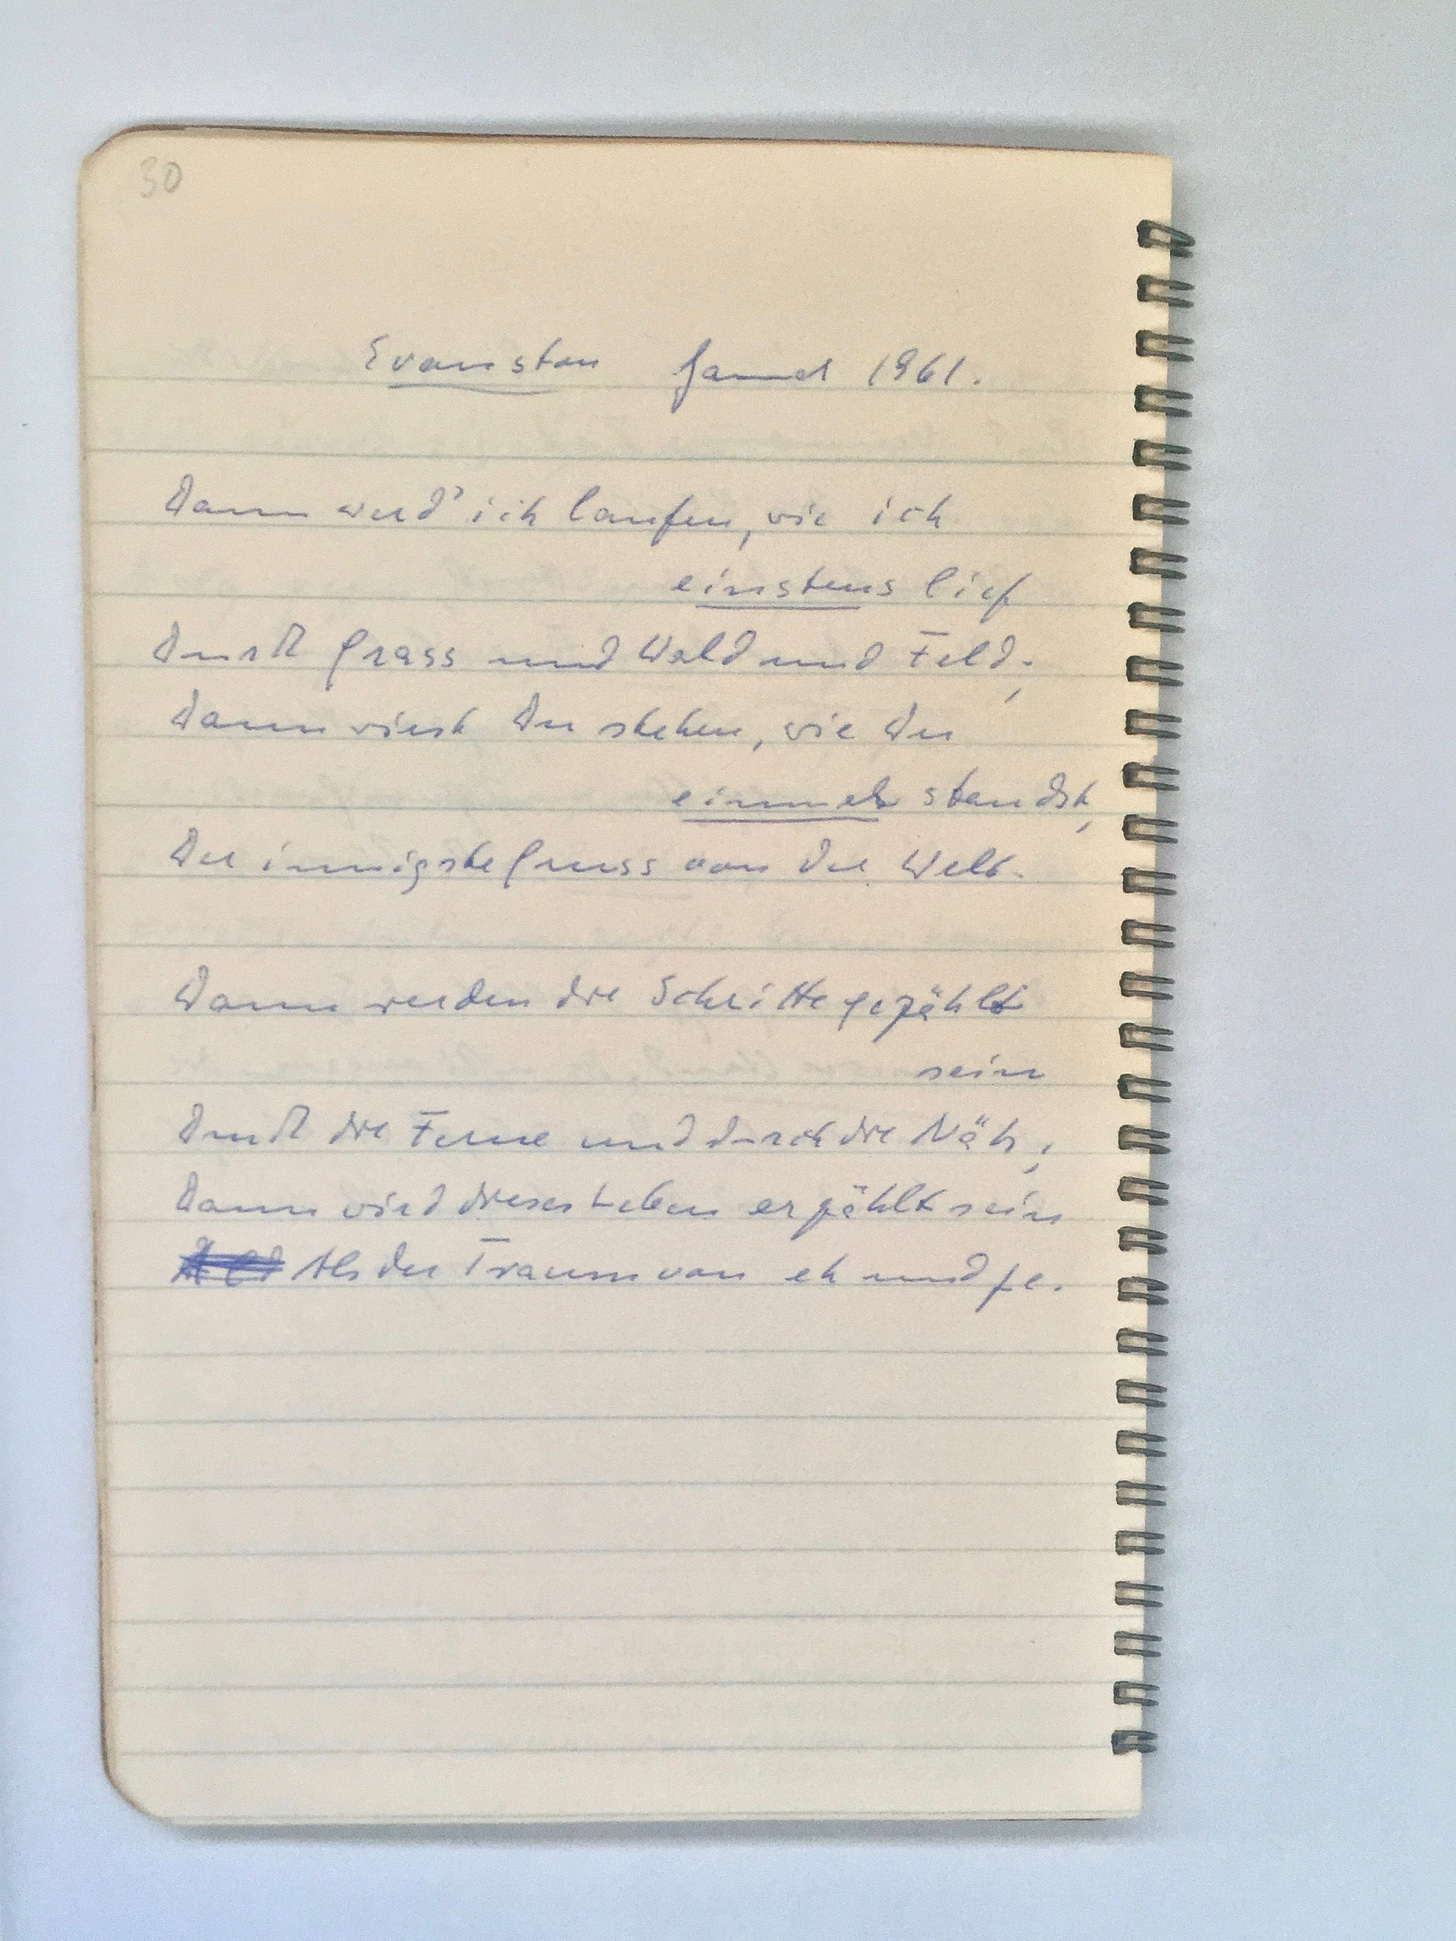 30
Evanston Januar 1961.
Dann werd' ich laufen, wie ich
einstens lief
Durch Grass und Wald und Feld;
Dann wirst Du stehen, wie Du
einmal standst,
Der innigste Gruss von der Welt.
Dann werden die Schritte gezählt
sein
Durch die Ferne und durch die Näh;
Dann wird dieses Leben erzählt sein
Als der Traum von eh und je.